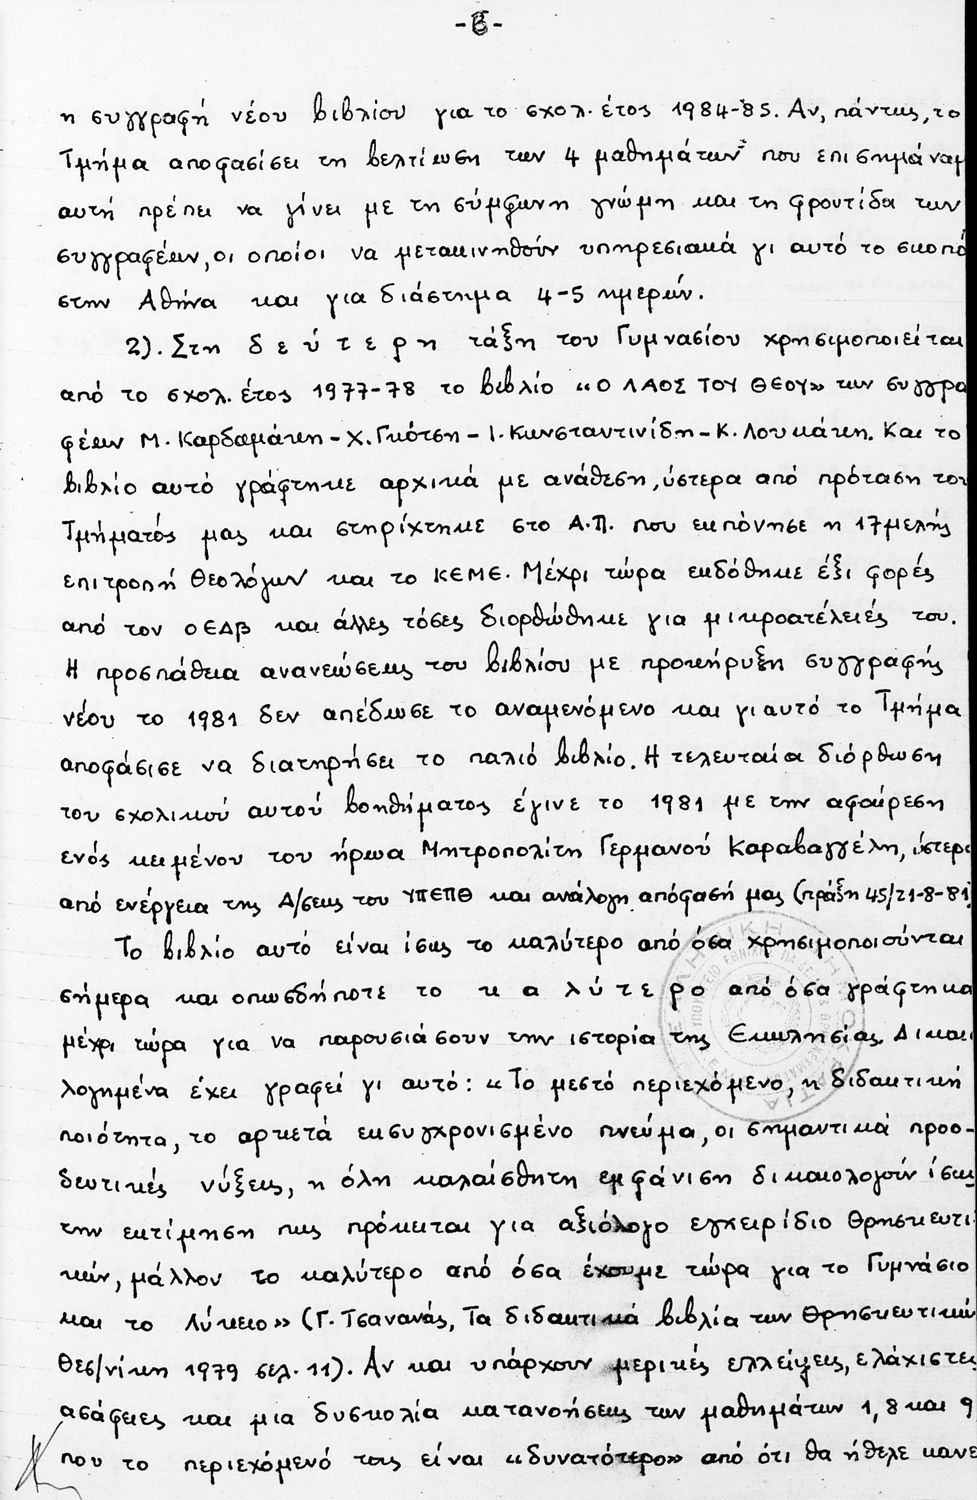 -6-
η συγγραφή νέου βιβλίου για το σχολ. έτος 1984-85. Αν, πάντως, το
Τμήμα αποφασίσει τη βελτίωση των 4 μαθημάτων που επισημάναμ
αυτή πρέπει να γίνει με τη σύμφωνη γνώμη και τη φροντίδα των
συγγραφέων, οι οποίοι να μετακινηθούν υπηρεσιακά γι αυτό το σκοπό
στην Αθήνα και για διάστημα 4-5 ημερών.
2). Στη δ ε ύ τ ε ρ η τάξη του Γυμνασίου χρησιμοποιείται
από το σχολ. έτος 1977-78 το βιβλίο «Ο ΛΑΟΣ ΤΟΥ ΘΕΟΥ» των συγγρα
φέων Μ. Καρδαμάκη - Χ. Γκότση - Ι. Κωνσταντινίδη - Κ. Λουκάκη. Και το
βιβλίο αυτό γράφτηκε αρχικά με ανάθεση, ύστερα από πρόταση του
Τμήματός μας και στηρίχτηκε στο Α.Π. που εκπόνησε η 17μελής
επιτροπή Θεολόγων και το ΚΕΜΕ. Μέχρι τώρα εκδόθηκε έξι φορές
από τον ΟΕΔΒ και άλλες τόσες διορθώθηκε για μικροατέλειές του.
Η προσπάθεια ανανεώσεως του βιβλίου με προκήρυξη συγγραφής
νέου το 1981 δεν απέδωσε το αναμενόμενο και γιαυτό το Τμήμα
αποφάσισε να διατηρήσει το παλιό βιβλίο. Η τελευταία διόρθωση
του σχολικού αυτού βοηθήματος έγινε το 1981 με την αφαίρεση
ενός κειμένου του ήρωα Μητροπολίτη Γερμανού Καραβαγγέλη, ύστερα
από ενέργεια της Δ/σεως του ΥΠΕΠΘ και ανάλογη απόφασή μας (πράξη 45/21-8-81)
Το βιβλίο αυτό είναι ίσως το καλύτερο από όσα χρησιμοποιούνται
σήμερα και οπωσδήποτε το κ α λ ύ τ ε ρ ο από όσα γράφτηκα
μέχρι τώρα για να παρουσιάσουν την ιστορία της Εκκλησίας. Δικαι
λογημένα έχει γραφεί γι αυτό: «Το μεστό περιεχόμενο, η διδακτική
ποιότητα, το αρκετά εκσυγχρονισμένο πνεύμα, οι σημαντικά προο-
δευτικές νύξεις, η όλη καλαίσθητη εμφάνιση δικαιολογούν ίσως
την εκτίμηση πως πρόκειται για αξιόλογο εγχειρίδιο θρησκευτι
κών, μάλλον το καλύτερο από όσα έχουμε τώρα για το Γυμνάσιο
και το Λύκειο» (Γ. Τσανανάς, Τα διδακτικά βιβλία των θρησκευτικών
Θεσ/νίκη 1979 σελ. 11). Αν και υπάρχουν μερικές ελλείψεις, ελάχιστες
ασάφειες και μια δυσκολία κατανοήσεως των μαθημάτων 1, 8 και 9
που το περιεχόμενό τους είναι «δυνατότερο» από ότι θα ήθελε κανε